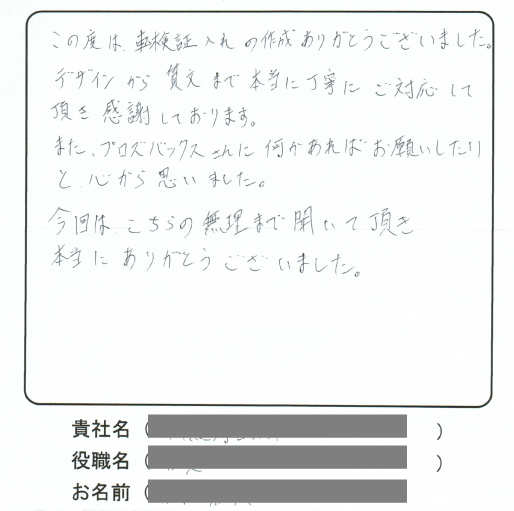 この度は 車検証入れ の作成ありがとうございました。
デザインから 質文まで本当に丁寧に ご対応して
頂き 感謝しております。
また、プロズバックスさんに 何かあれば お願いしたい
と 心から思いました。
今回は こちらの無理まで聞いて頂き
本当に ありがとう ございました。
貴社名 ( )
役職名 ( )
お名前 (